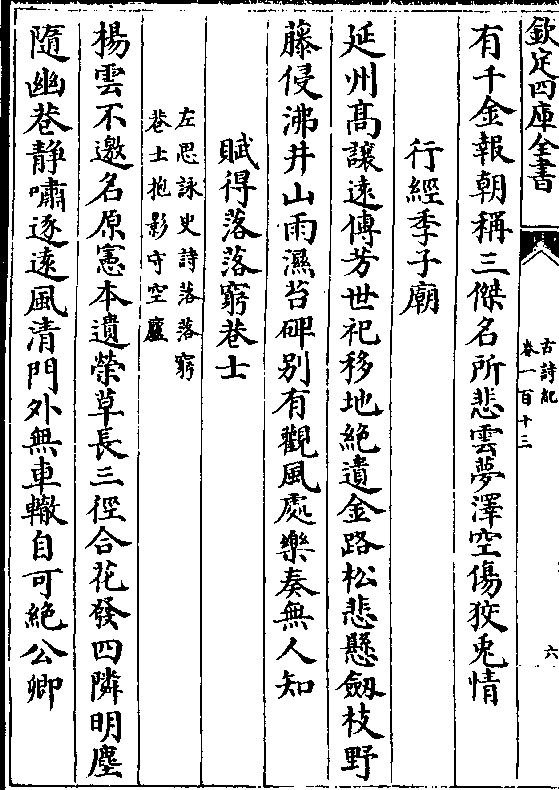 欽定四庫全書
古詩紀
卷一百十三
六
有千金報朝稱三傑名所悲雲夢澤空傷狡兎情
行經季子廟
延州髙讓逺傳芳世祀移地絶遺金路松悲懸劔枝野
藤侵沸井山雨濕苔碑别有觀風處樂奏無人知
賦得落落窮巷士
左思詠史詩落落窮
巷士抱影守空廬
揚雲不邀名原憲本遺榮草長三徑合花發四隣明塵
隨幽巷靜嘯逐逺風清門外無車轍自可絶公卿